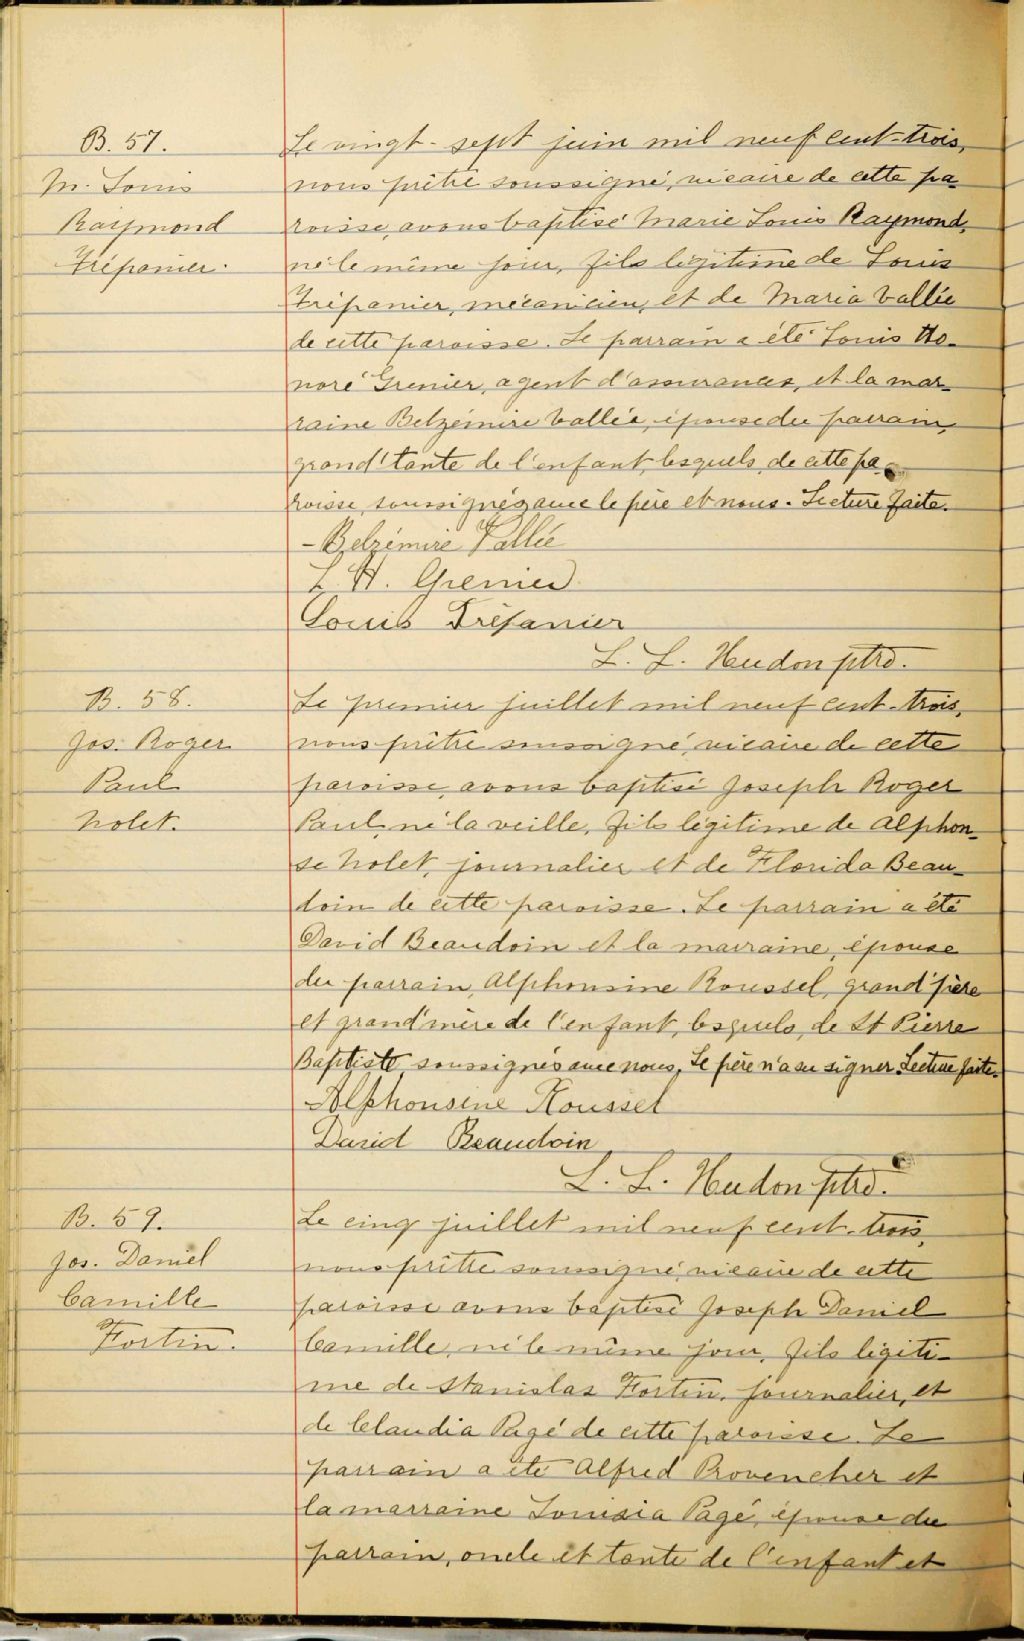 B. 57.
M. Louis
Raymond
Trépanier.
Le vingt-sept juin mil neuf cent-trois,
nous prêtre soussigné, vicaire de cette pa-
roisse, avons baptisé Marie Louis Raymond,
né le même jour, fils légitime de Louis
Trépanier, mécanicien, et de Maria Vallée
de cette paroisse. Le parrain a été Louis Ho-
noré Grenier, agent d'assurances, et la mar-
raine Belzémire Vallée, épouse du parrain,
grand'tante de l'enfant, lesquels, de cette pa-
roisse, soussignés avec le père et nous. Lecture faite.
- Belzémire Vallée
L. H. Grenier
Louis Trépanier
L. L. Hudon ptre.
B. 58.
Jos. Roger
Paul
Nolet.
Le premier juillet mil neuf cent-trois,
nous prêtre soussigné, vicaire de cette
paroisse, avons baptisé Joseph Roger
Paul, né la veille, fils légitime de Alphon-
se Nolet, journalier et de Florida Beau-
doin de cette paroisse. Le parrain a été
David Beaudoin et la marraine, épouse
du parrain, Alphonsine Roussel, grand'père
et grand'mère de l'enfant, lesquels, de St Pierre
Baptiste soussignés avec nous. Le père n'a su signer. Lecture faite.
Alphonsine Roussel
David Beaudoin
L. L. Hudon ptre.
B. 59.
Jos. Daniel
Camille
Fortin.
Le cinq juillet mil neuf cent-trois,
nous prêtre soussigné, vicaire de cette
paroisse avons baptisé Joseph Daniel
Camille, né le même jour, fils légiti-
me de Stanislas Fortin, journalier, et
de Claudia Pagé de cette paroisse. Le
parrain a été Alfred Provencher et
la marraine Louisia Pagé, épouse du
parrain, oncle et tante de l'enfant et